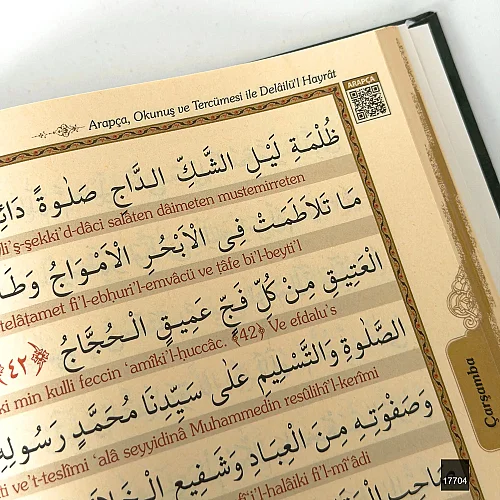 Arapça, Okunuş ve Tercümesi ile Delâilü'l Hayrât
ARAPÇA
ظُلْمَةِ لَيْلِ الشَّكِّ الدَّاجِ صَلٰوةً
ş-şekki'd-dâci salâten dâimeten mustemirreten
مَا تَلَاطَمَتْ فِى الْاَبْحُرِ الْاَمْوَاجُ
telâṭamet fi'l-ebḥuri'l-emvâcü ve tâfe bi'l-beyti'l
الْعَتِيقِ مِنْ كُلِّ فَجٍّ عَمِيقٍ الْحُجَّاجُ ﴿٤٢﴾
min kulli feccin 'amîki'l-ḥuccâc. ﴾42﴿ Ve efdalu's
الصَّلٰوةِ وَالتَّسْلِيمِ عَلٰى سَيِّدِنَا مُحَمَّدٍ رَسُولِهِ
ve't-teslîmi 'alâ seyyidinâ Muhammedin resûlihi'l-kerîmi
وَصَفْوَتِهِ مِنَ الْعِبَادِ وَشَفِيعِ
fî'l-mî'âdi
Çarşamba
17704